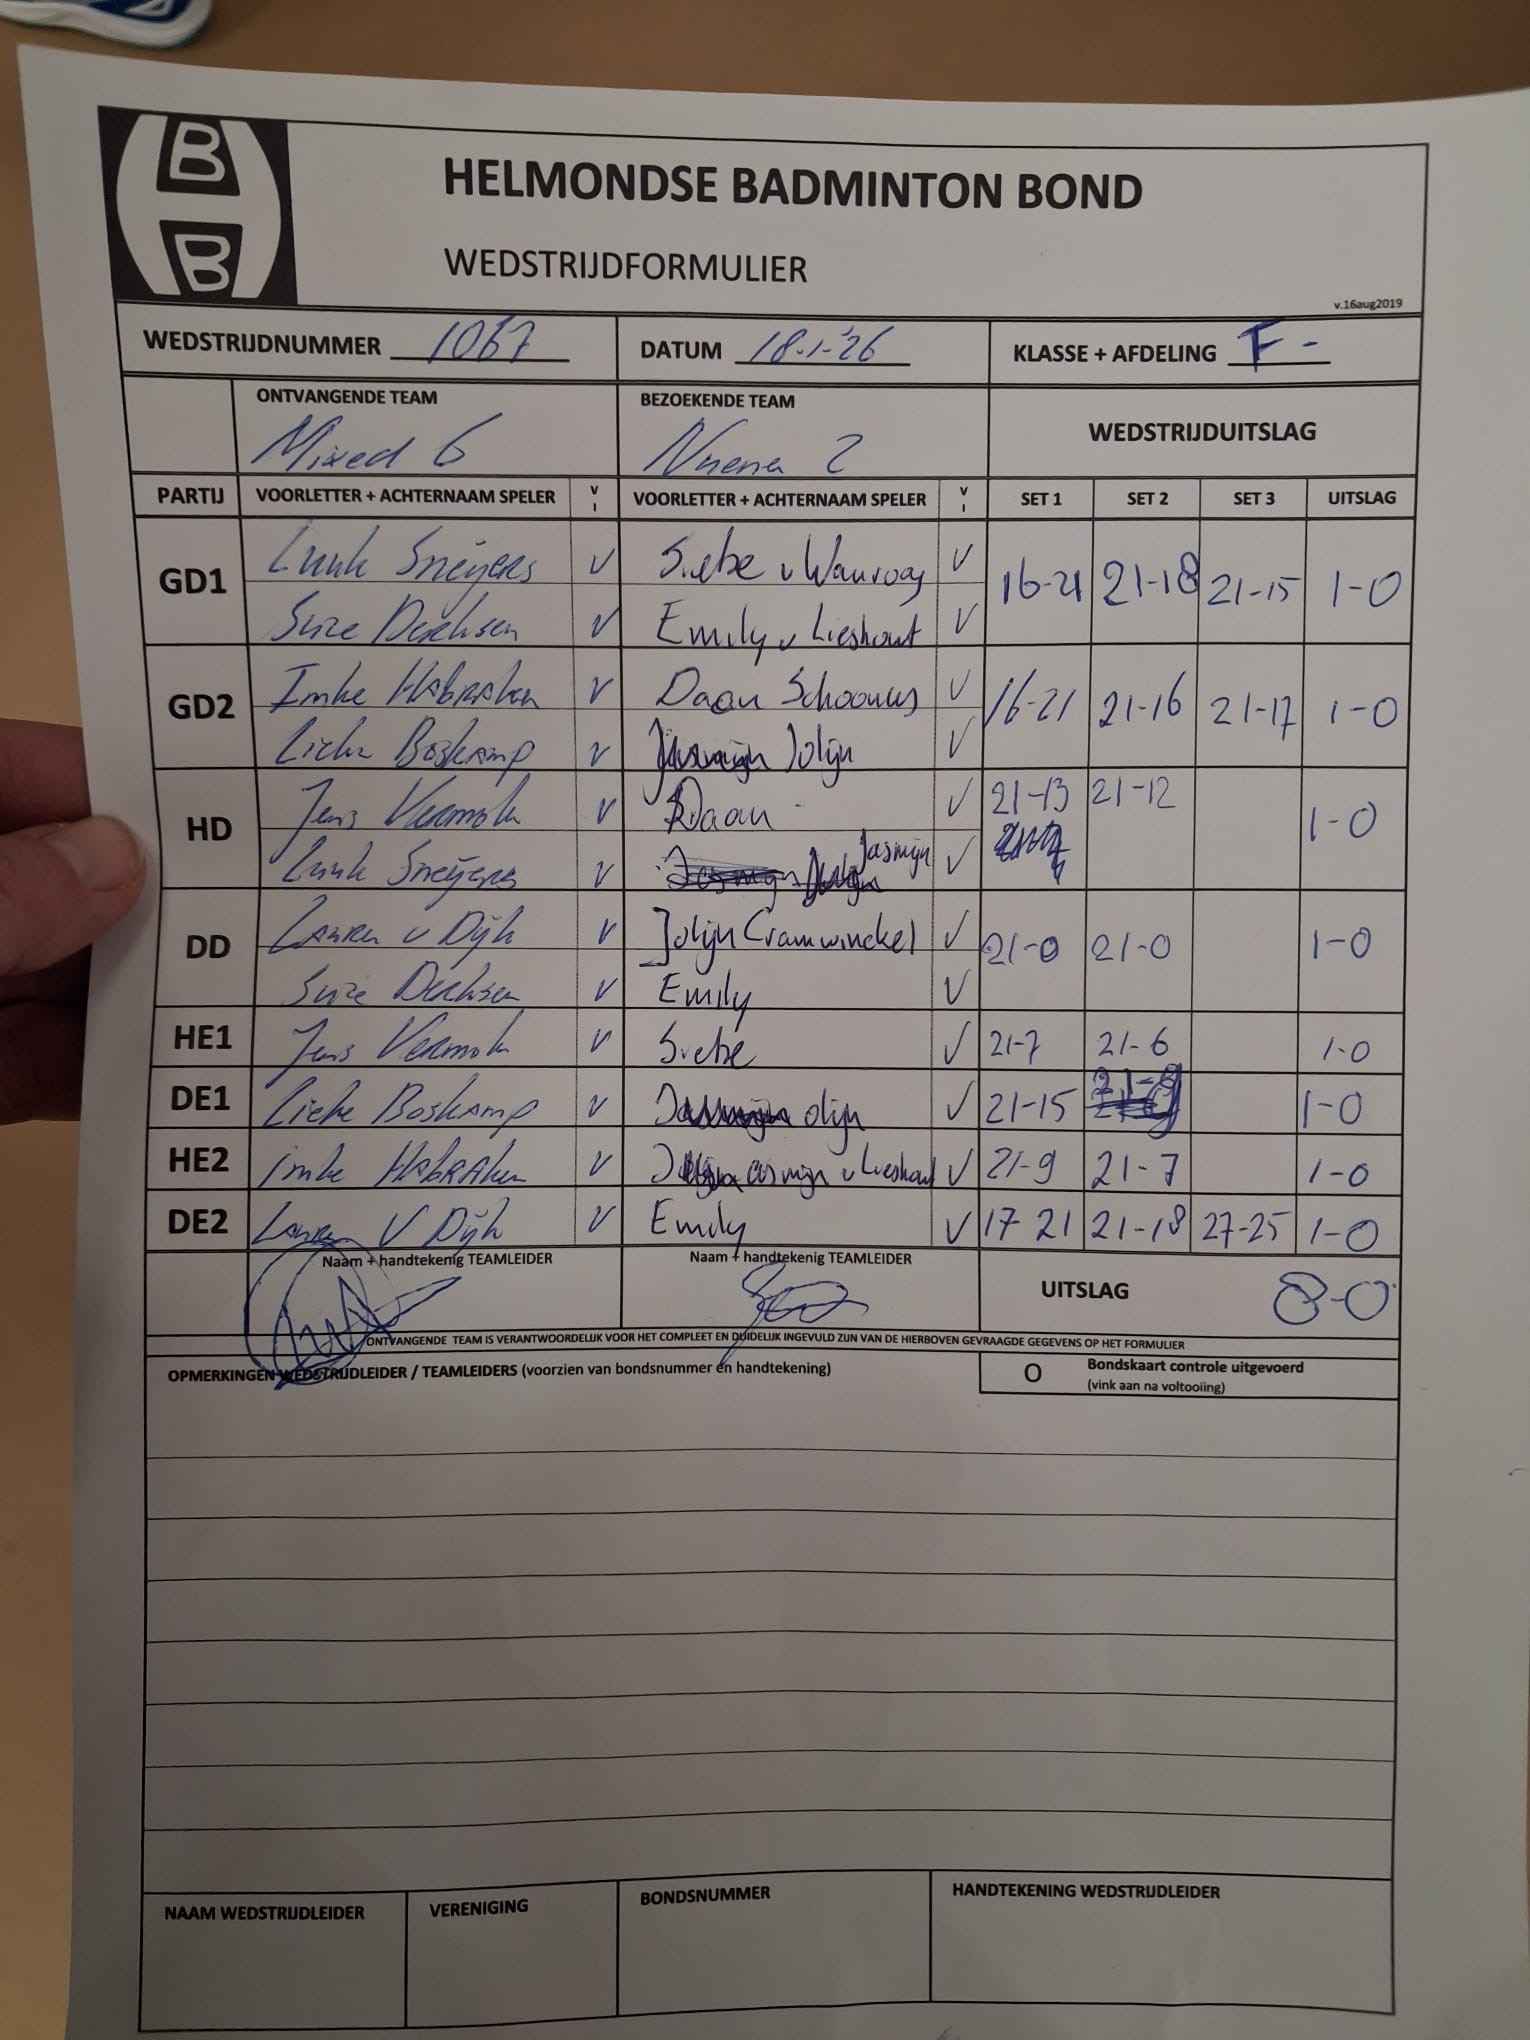 B
B
HELMONDSE BADMINTON BOND
WEDSTRIJDFORMULIER
v.16aug2019
WEDSTRIJDNUMMER 1067 DATUM 18-1-'26 KLASSE + AFDELING F -
ONTVANGENDE TEAM BEZOEKENDE TEAM WEDSTRIJDUITSLAG
Mixed 6 2
PARTIJ VOORLETTER + ACHTERNAAM SPELER V I VOORLETTER + ACHTERNAAM SPELER V I SET 1 SET 2 SET 3 UITSLAG
GD1 Luuk Sneijers V Siebe v Wanrooy V 16-21 21-18 21-15 1-0
Suze Derksen V Emily v Lieshout V
GD2 Imke Habraken V Daan V 16-21 21-16 21-17 1-0
Lieke Boskamp V Jolijn V
HD Jens V Daan V 21-13 21-12 1-0
Luuk Sneijers V Jasmijn V
DD Lauren v Dijk V Jolijn Cramwinckel V 21-0 21-0 1-0
Suze Derksen V Emily V
HE1 Jens V Siebe V 21-7 21-6 1-0
DE1 Lieke Boskamp V Jolijn V 21-15 1-0
HE2 Imke Habraken V Jasmijn v Lieshout V 21-9 21-7 1-0
DE2 Lauren V Dijk V Emily V 17-21 21-18 27-25 1-0
Naam + handtekenig TEAMLEIDER Naam + handtekenig TEAMLEIDER UITSLAG 8-0
ONTVANGENDE TEAM IS VERANTWOORDELIJK VOOR HET COMPLEET EN DUIDELIJK INGEVULD ZIJN VAN DE HIERBOVEN GEVRAAGDE GEGEVENS OP HET FORMULIER
OPMERKINGEN WEDSTRIJDLEIDER / TEAMLEIDERS (voorzien van bondsnummer en handtekening) O Bondskaart controle uitgevoerd
(vink aan na voltooiing)
NAAM WEDSTRIJDLEIDER VERENIGING BONDSNUMMER HANDTEKENING WEDSTRIJDLEIDER